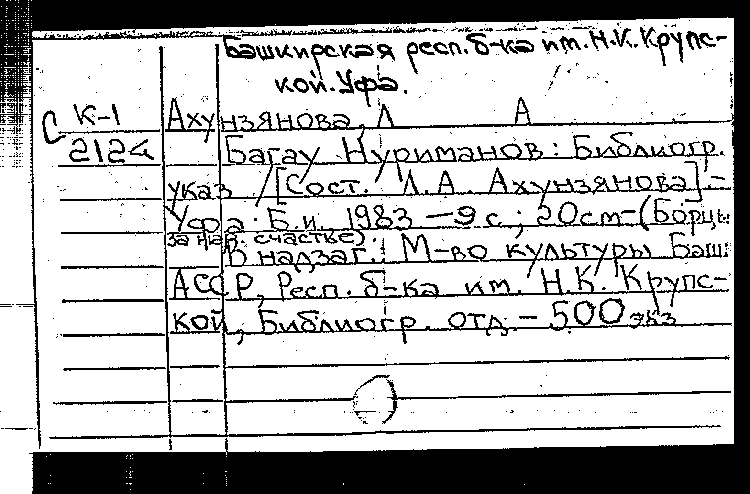 Башкирская респ. б-ка им. Н.К. Крупс-
кой. Уфа.
С К-1 Ахунзянова, Л А
2124 Багау Нуриманов: Библиогр.
указ / [Сост. Л.А. Ахунзянова] -
Уфа: Б.и., 1983 - 9 с.; 20 см - (Борцы
за нар. счастье).
В надзаг.: М-во культуры Баш.
АССР, Респ. б-ка им. Н.К. Крупс-
кой, Библиогр. отд. - 500 экз